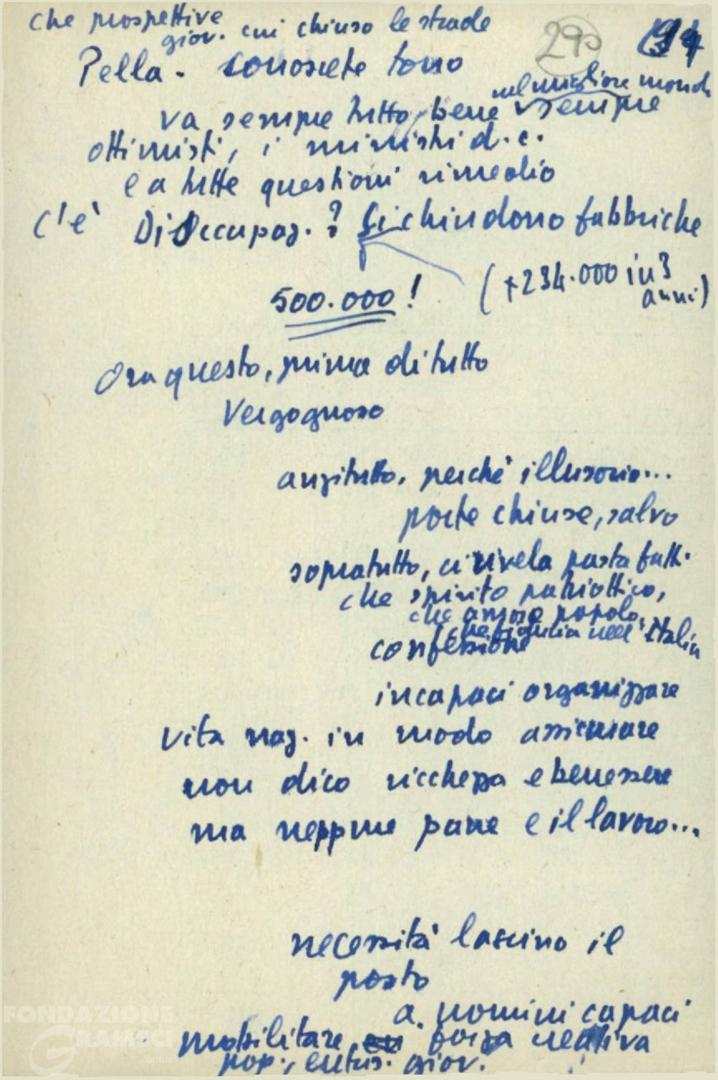 che prospettive
giov. cui chiuso le strade
290 94
Pella. conoscete tono
nel migliore mondi
va sempre tutto bene sempre
ottimisti, i ministri d.c.
e a tutte questioni rimedio
C'è Disoccupaz.? Si chiudono fabbriche
500.000! (+234.000 in 3
anni)
Ora questo, prima di tutto
Vergognoso
anzitutto, perché illusorio...
porte chiuse, salvo
sopratutto, ci rivela pasta fatti.
che spirito patriottico,
che amore popolo,
che fiducia nell'Italia
confessione
incapaci organizzare
vita naz. in modo assicurare
non dico ricchezza e benessere
ma neppure pane e il lavoro...
necessità lascino il
posto
a uomini capaci
mobilitare forza creativa
pop., entus. giov.
FONDAZIONE
GRAMSCI